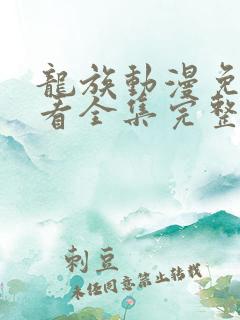 龍族動漫免
看全集完整
刺豆
未经同意禁止转载